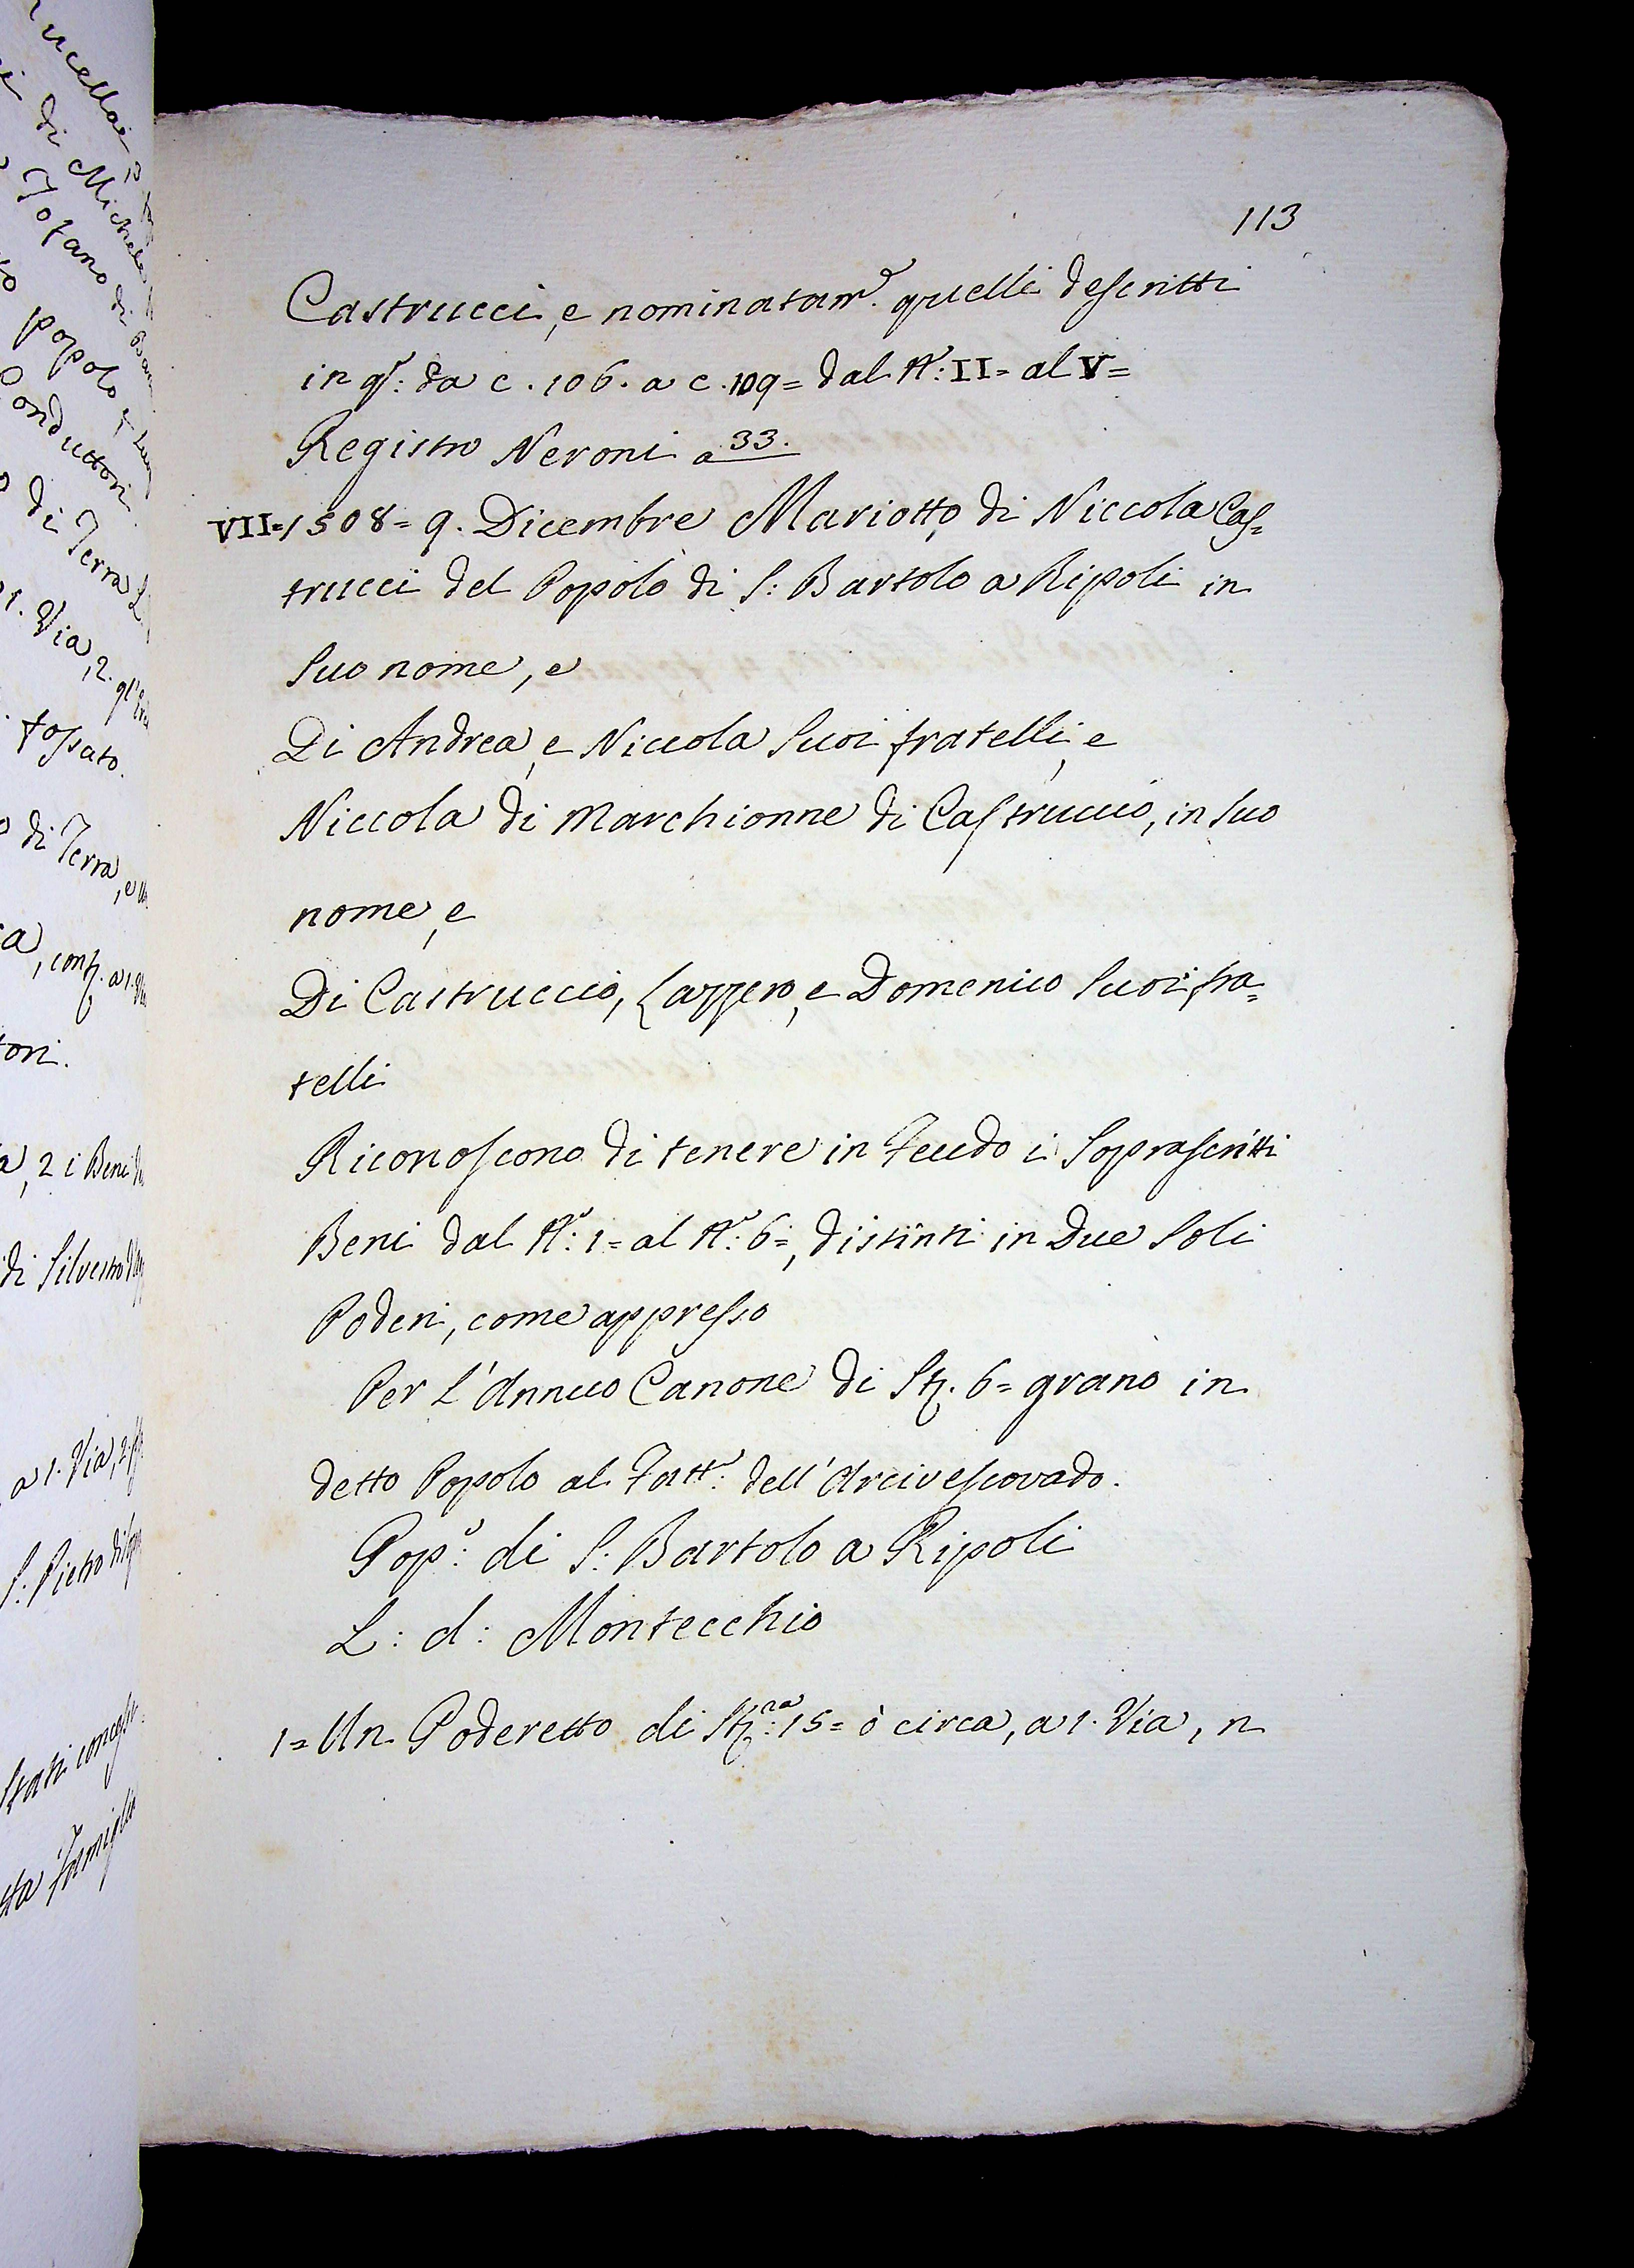 113
Castrucci, e nominatam.e quelli descritti
in q.o: da c. 106. a c. 109= dal N.o: II= al V=
Registro Neroni a 33.
VII=1508= 9. Dicembre Mariotto di Niccola Cas=
trucci del Popolo di S: Bartolo a Ripoli in
suo nome, e
Di Andrea, e Niccola suoi fratelli, e
Niccola di Marchionne di Castruccio, in suo
nome, e
Di Castruccio, Lazzero, e Domenico suoi fra=
telli
Riconoscono di tenere in Feudo i soprascritti
Beni dal N.o: 1= al N.o: 6=, distinti in Due soli
Poderi, come appresso
Per l'Annuo Canone di St. 6= grano in
detto Popolo al Fatt.e: dell'Arcivescovado.
Pop.o: di S: Bartolo a Ripoli
L: d: Montecchio
1= Un Poderetto di St.na: 15= ò circa, a 1. Via, n
ucellai
di Michele
Tofano di
popolo
onduttori
di Terra
1. Via, 2.
fossato.
di Terra, e
a, conf. a 1.
tori.
a, 2 i Beni
di Silvestro
a 1. Via, 2.
S: Pietro di
stati
ta Famiglia